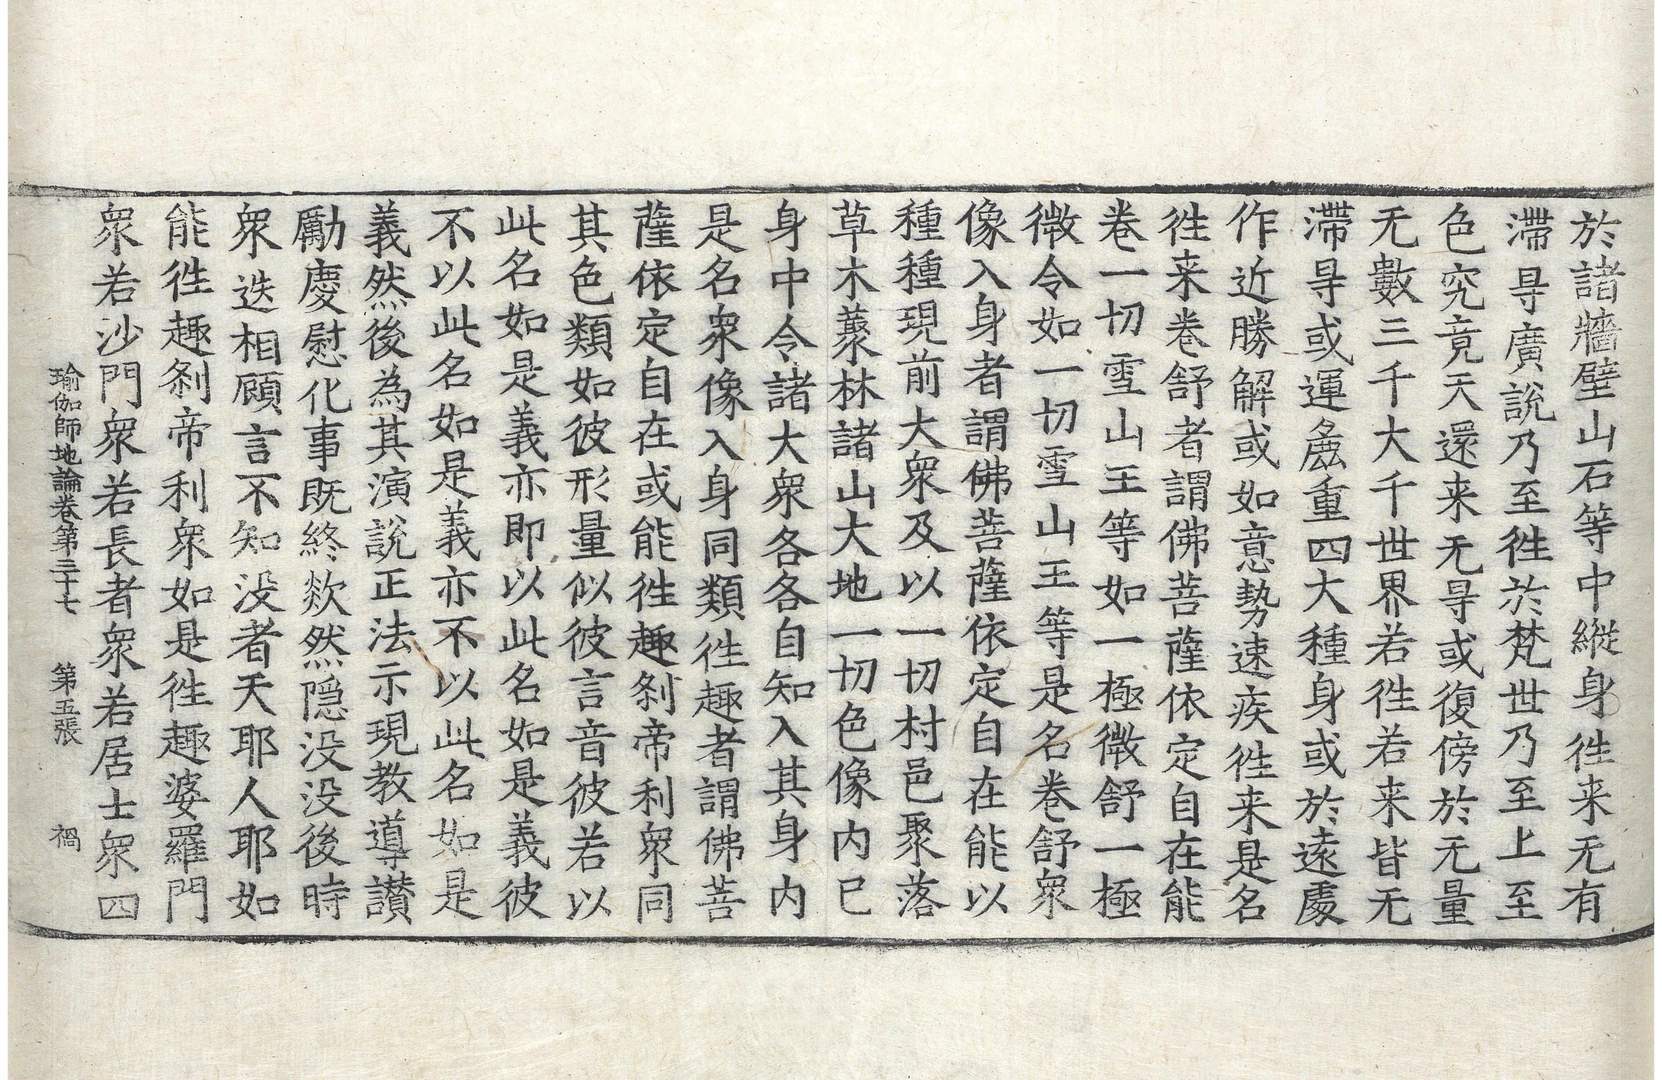 於諸牆壁山石等中縱身徃来无有
滯㝵廣說乃至徃於梵世乃至上至
色究竟天還来无㝵或復傍於无量
无數三千大千世界若徃若来皆无
滯㝵或運麁重四大種身或於遠處
作近勝解或如意勢速疾徃来是名
徃来卷舒者謂佛菩薩依定自在能
卷一切雪山王等如一極微舒一極
微令如一切雪山王等是名卷舒衆
像入身者謂佛菩薩依定自在能以
種種現前大衆及以一切村邑聚落
草木藂林諸山大地一切色像内已
身中令諸大衆各各自知入其身内
是名衆像入身同類徃趣者謂佛菩
薩依定自在或能徃趣刹帝利衆同
其色類如彼形量似彼言音彼若以
此名如是義亦即以此名如是義彼
不以此名如是義亦不以此名如是
義然後為其演說正法示現教導讃
勵慶慰化事既終欻然隱没没後時
衆迭相顧言不知没者天耶人耶如
能徃趣刹帝利衆如是徃趣婆羅門
衆若沙門衆若長者衆若居士衆四
瑜伽師地論卷第三十七　第五張　禍